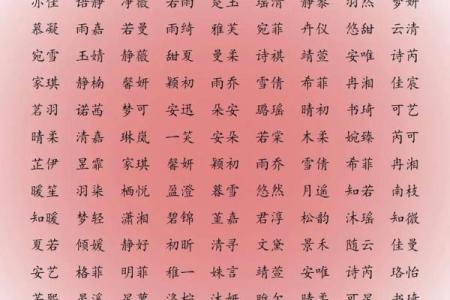 亦佳 语静 净薇 若雨 逸尤 瑶清 静慕 羽然 梦妍
慕凝 雨嘉 若曼 雨绮 雅芙 宛菲 丹仪 悠甜 云清
宛雪 玉婧 静薇 甜夏 曼柔 诗祺 靖萱 安唯 诗芮
家琪 静楠 馨妍 颖初 雨乔 雪倩 希菲 冉湘 佳宸
茗羽 诺茜 梦可 安迅 朵安 璐瑶 晴初 书琦 可艺
晴柔 清嘉 琳岚 一笑 安朵 若棠 木柔 婉臻 芮可
芷伊 昱霏 家琪 馨妍 颖初 雨乔 雪倩 希菲 冉湘
暖笙 羽柒 栖悦 盈澄 暮雪 悠然 月遥 知若 南枝
知暖 梦轻 潇湘 碧锦 堇嘉 君淳 松韵 沐瑶 知微
夏若 倾媛 静好 初昕 清寻 文黛 景禾 随云 佳曼
安艺 格菲 明菲 稚一 姝言 靖萱 安唯 诗芮 珞怡